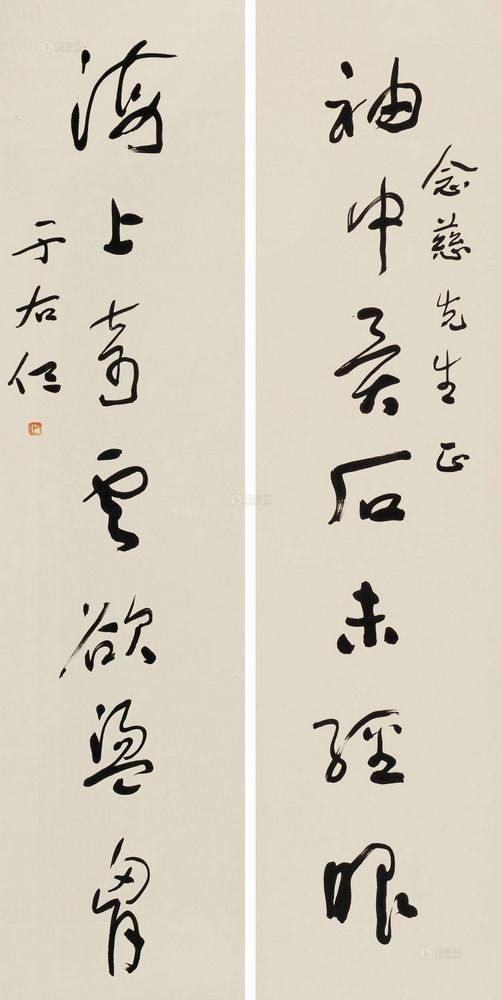 念慈先生正
袖中異石未經眼
海上奇雲欲盪胷
于右任